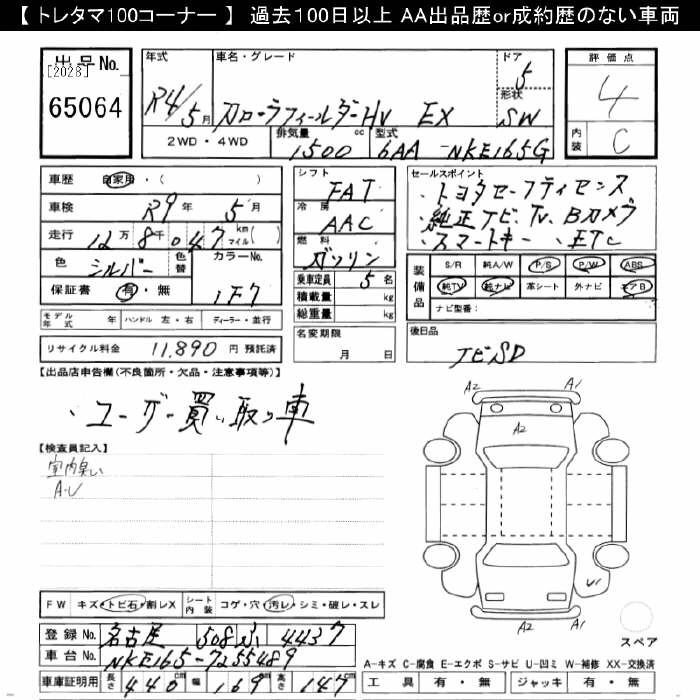 【 トレタマ100コーナー 】 過去100日以上 AA出品歴or成約歴のない車両
出品No.
[2028]
65064
年式
R4/5月
車名・グレード
カローラフィールダーHV EX
ドア
5
形状
SW
2WD・4WD
排気量
1500 cc
型式
6AA-NKE165G
評価点
4
内装
C
車歴 自家用・( )
車検 R9年 5月
走行 12万8千047 km マイル( )
色 シルバー 色替
カラーNo. 1F7
保証書 有・無
モデル年式 年 ハンドル 左・右 ディーラー・並行
リサイクル料金 11,890 円 預託済
シフト
FAT
冷房
AAC
燃料
ガソリン
乗車定員 5 名
積載量 kg
総重量 kg
名変期限
月 日
セールスポイント
・トヨタセーフティセンス
・純正ナビ、TV、Bカメラ
・スマートキー ・ETC
装備品
S/R 純A/W P/S P/W ABS
純TV 純ナビ 革シート 外ナビ エアB
ナビ型番:
後日品
ナビSD
【出品店申告欄(不良箇所・欠品・注意事項等)】
・ユーザー買い取り車
【検査員記入】
室内臭い
A・U
A2 A1
A2
U1
A2 A1
FW キズ・トビ石・割レX
シート内装 コゲ・穴・汚レ・シミ・破レ・スレ
登録No. 名古屋 508 ふ 4437
車台No. NKE165-7255489
車庫証明用 長さ 440 cm 幅 169 cm 高さ 147 cm
スペア
A-キズ C-腐食 E-エクボ S-サビ U-凹ミ W-補修 XX-交換済
工具 有・無 ジャッキ 有・無